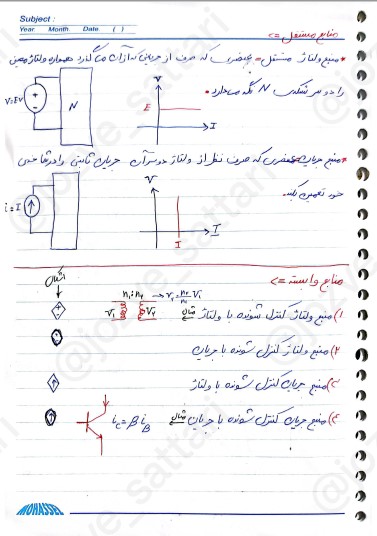 Subject :
Year. Month. Date. ( )
منابع مستقل <=
• منبع ولتاژ مستقل = عنصری که صرف از جریان که از آن می گذرد همواره ولتاژ معینی
را دو سر شبکه N نگه میدارد.
V=E
N
V
E
I
• منبع جریان عنصری که صرف نظر از ولتاژ دو سر آن جریان ثابتی را در شاخه
خود تضمین بکند.
i = I
V
I
I
منابع وابسته <=
اشکال
n₁:n₂ → v₂ = n₂/n₁ V₁
1) منبع ولتاژ کنترل شونده با ولتاژ مثال V₁ V₂
2) منبع ولتاژ کنترل شونده با جریان
3) منبع جریان کنترل شونده با ولتاژ
4) منبع جریان کنترل شونده با جریان مثال i_c = β i_B
MOHASSEL
@jozve_sattari